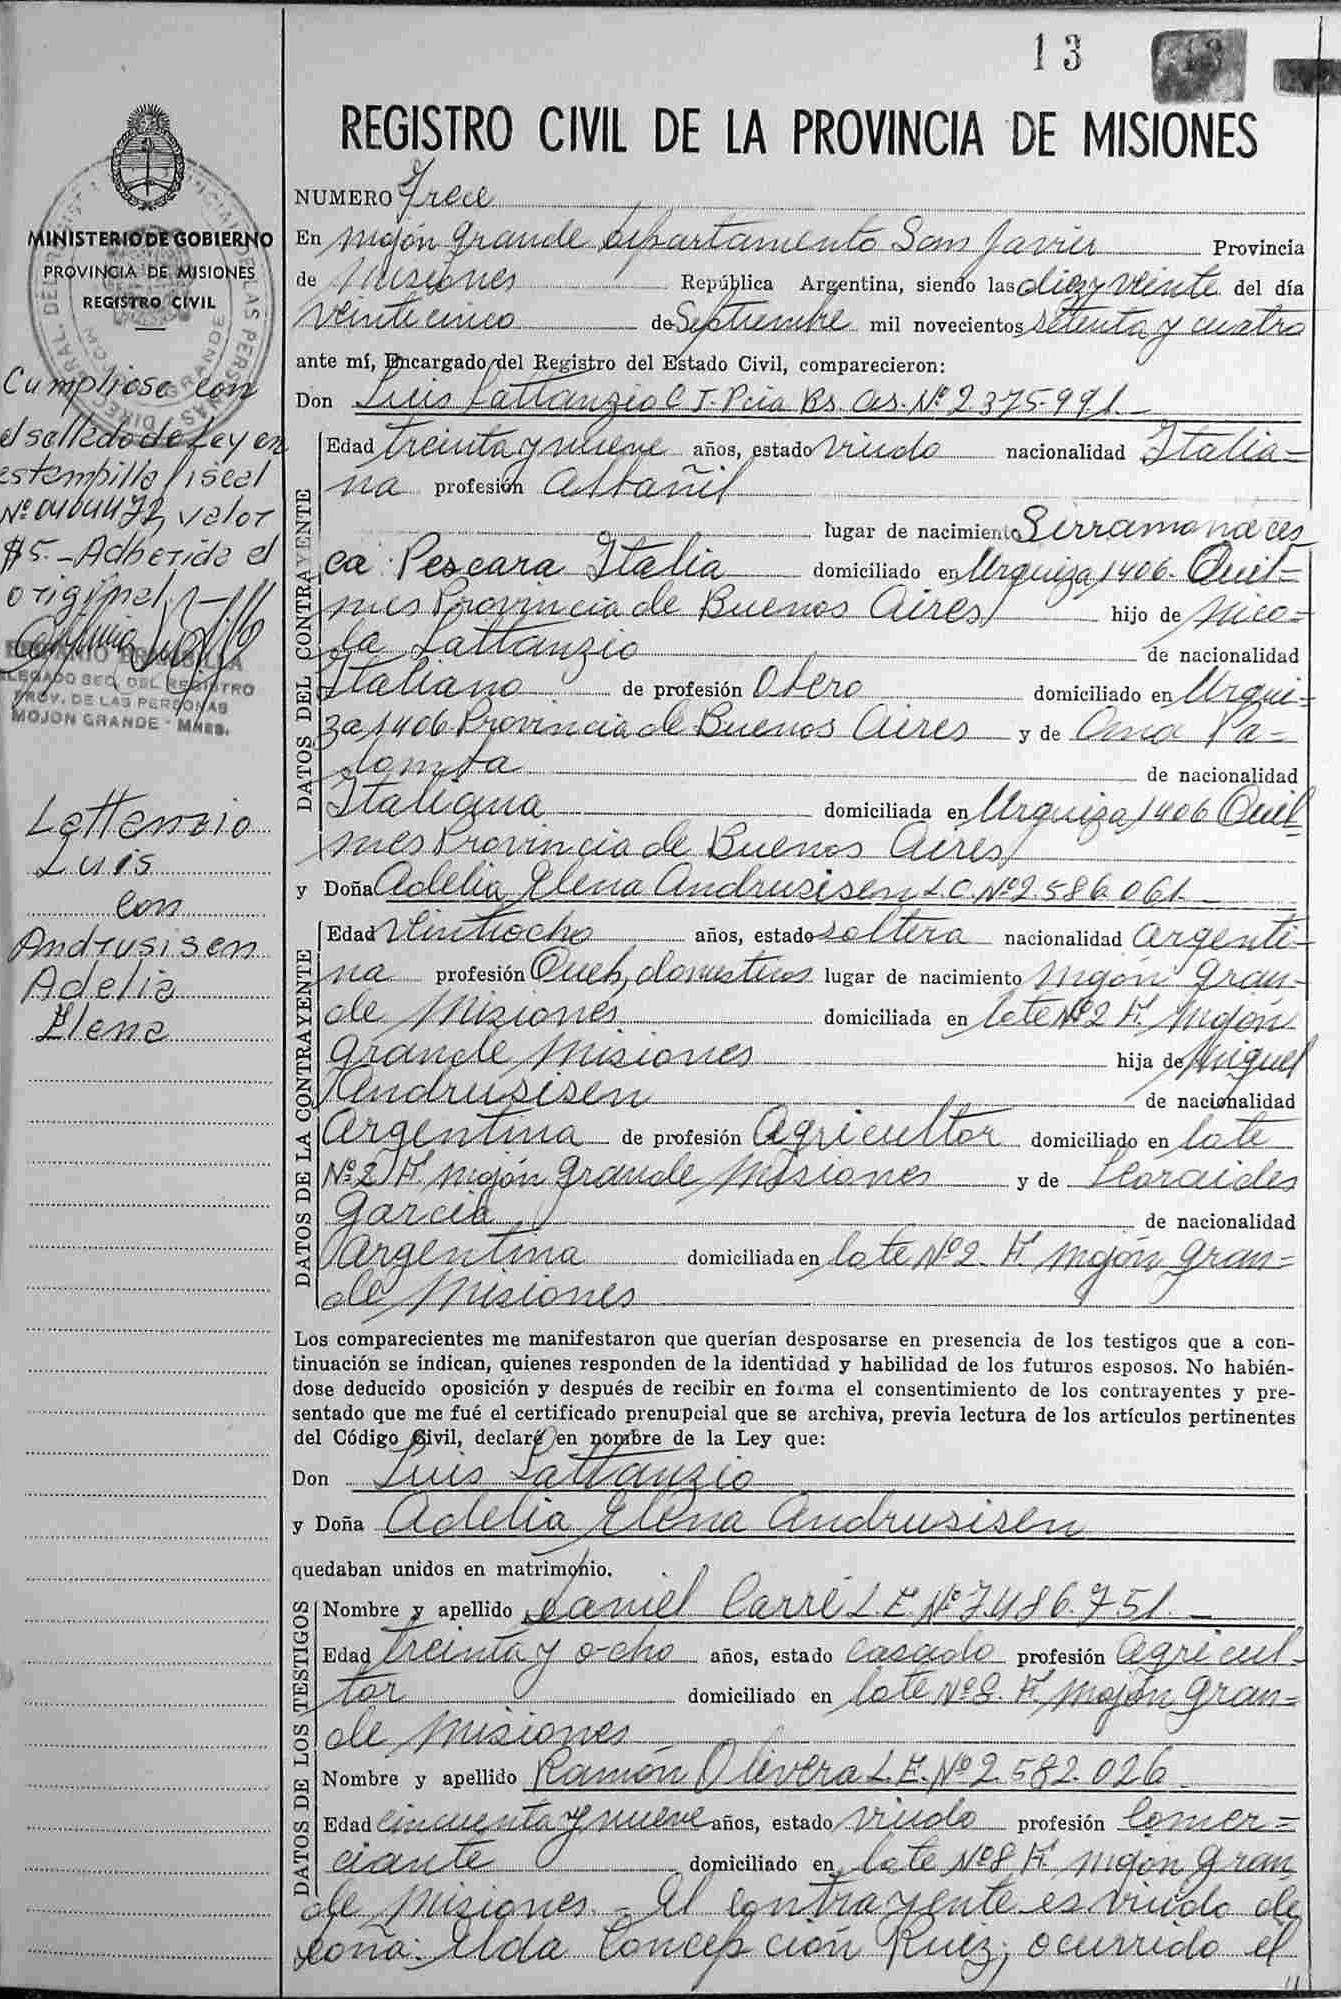 13
REGISTRO CIVIL DE LA PROVINCIA DE MISIONES
MINISTERIO DE GOBIERNO
PROVINCIA DE MISIONES
REGISTRO CIVIL
Cumpliose con
el sellado de Ley en
estampilla fiscal
Nº 0404472, valor
$5.- Adherida el
original.
LEGADO SEC. DEL REGISTRO
PROV. DE LAS PERSONAS
MOJON GRANDE - MNES.
Lattanzio
Luis
con
Andrusisen
Adelia
Elena
NUMERO Trece
En Mojón Grande departamento San Javier Provincia
de Misiones República Argentina, siendo las diez y veinte del día
veinticinco de Septiembre mil novecientos setenta y cuatro
ante mí, Encargado del Registro del Estado Civil, comparecieron:
Don Luis Lattanzio C I. Pcia Bs. As. Nº 2375.991.-
DATOS DEL CONTRAYENTE
Edad treinta y nueve años, estado viudo nacionalidad Italia=
na profesión Albañil
lugar de nacimiento Serramonaces
ca: Pescara Italia domiciliado en Urquiza 1406. Quil-
mes Provincia de Buenos Aires hijo de Nico=
la Lattanzio de nacionalidad
Italiano de profesión Obrero domiciliado en Urqui-
za 1406 Provincia de Buenos Aires y de Ana Pa-
lomba de nacionalidad
Italiana domiciliada en Urquiza 1406 Quil-
mes Provincia de Buenos Aires
y Doña Adelia Elena Andrusisen L.C. Nº 2.586.061.-
DATOS DE LA CONTRAYENTE
Edad Veintiocho años, estado soltera nacionalidad Argenti-
na profesión Queh, domesticos lugar de nacimiento Mojón Gran-
de Misiones domiciliada en lote Nº 2 A. Mojón
Grande Misiones hija de Miguel
Andrusisen de nacionalidad
Argentina de profesión Agricultor domiciliado en lote
Nº 2 A. Mojón Grande Misiones y de Floraides
Garcia de nacionalidad
Argentina domiciliada en lote Nº 2. A. Mojón Gran=
de Misiones
Los comparecientes me manifestaron que querían desposarse en presencia de los testigos que a con-
tinuación se indican, quienes responden de la identidad y habilidad de los futuros esposos. No habién-
dose deducido oposición y después de recibir en forma el consentimiento de los contrayentes y pre-
sentado que me fué el certificado prenupcial que se archiva, previa lectura de los artículos pertinentes
del Código Civil, declaré en nombre de la Ley que:
Don Luis Lattanzio
y Doña Adelia Elena Andrusisen
quedaban unidos en matrimonio.
DATOS DE LOS TESTIGOS
Nombre y apellido Daniel Carré L.E. Nº 7.486.751.-
Edad treinta y ocho años, estado casado profesión Agricul-
tor domiciliado en lote Nº 8. A. Mojón Gran=
de Misiones
Nombre y apellido Ramón Olivera L.E. Nº 2.582.026
Edad cincuenta y nueve años, estado viudo profesión Comer=
ciante domiciliado en lote Nº 8 A. Mojón Gran
de Misiones.- El contrayente es viudo de
doña: Elda Concepción Ruiz; ocurrido el